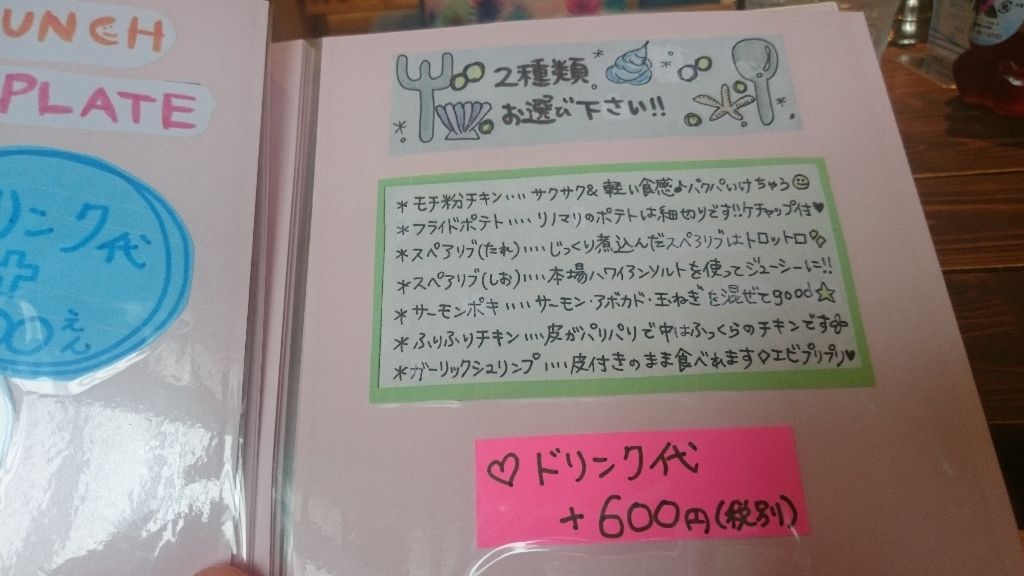 UNCH
PLATE
リンク代
+
00えん
2種類
お選び下さい!!
*モチ粉チキン‥‥サクサク&軽い食感♪パクパクいけちゃう☺
*フライドポテト‥‥リノマリのポテトは細切りです!!ケチャップ付♥
*スペアリブ(たれ)‥‥じっくり煮込んだスペアリブはトロットロ
*スペアリブ(しお)‥‥本場ハワイアンソルトを使ってジューシーに!!
*サーモンポキ‥‥サーモン・アボカド・玉ねぎを混ぜてgood☆
*ふりふりチキン‥‥皮がパリパリで中はふっくらのチキンです
*ガーリックシュリンプ‥‥皮付きのまま食べれます◇エビプリプリ♥
♡ドリンク代
+600円(税別)